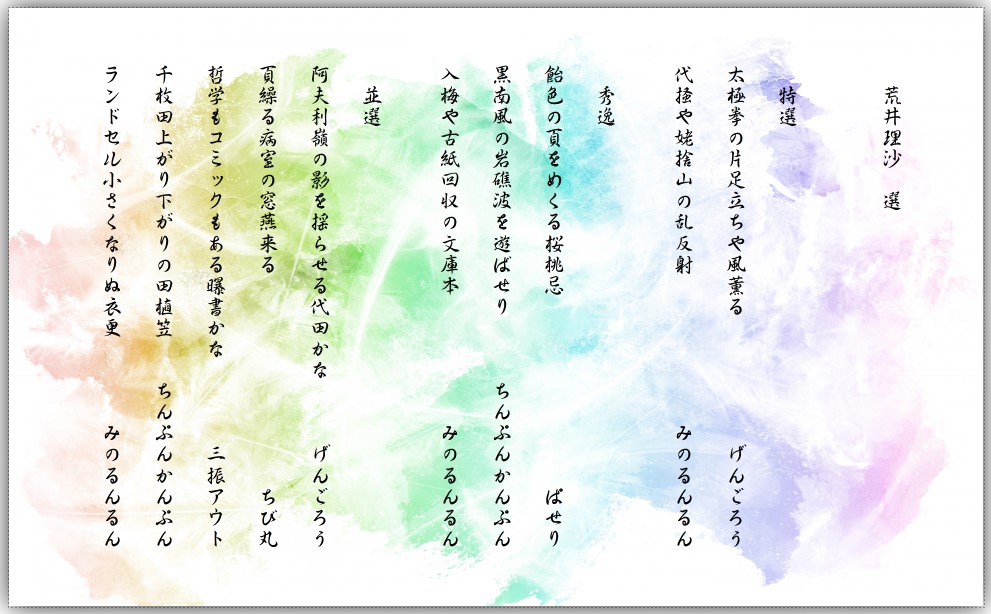 荒井理沙　選
特選
太極拳の片足立ちや風薫る　げんごろう
代掻や姥捨山の乱反射　みのるんるん
秀逸
飴色の頁をめくる桜桃忌　ぱせり
黒南風の岩礁波を遊ばせり　ちんぷんかんぷん
入梅や古紙回収の文庫本　みのるんるん
並選
阿夫利嶺の影を揺らせる代田かな　げんごろう
頁繰る病室の窓燕来る　ちび丸
哲学もコミックもある曝書かな　三振アウト
千枚田上がり下がりの田植笠　ちんぷんかんぷん
ランドセル小さくなりぬ衣更　みのるんるん